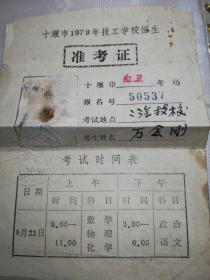 十堰市1979年技工学校招生
准考证
十堰市 红卫 考场
报名号 50537
考试地点 二治技校
考生姓名 万金刚
考试时间表
日期 上午 下午
时间 科目 时间 科目
9月23日 8.00—11.00 数学 物理 化学 3.00—6.00 政治 语文